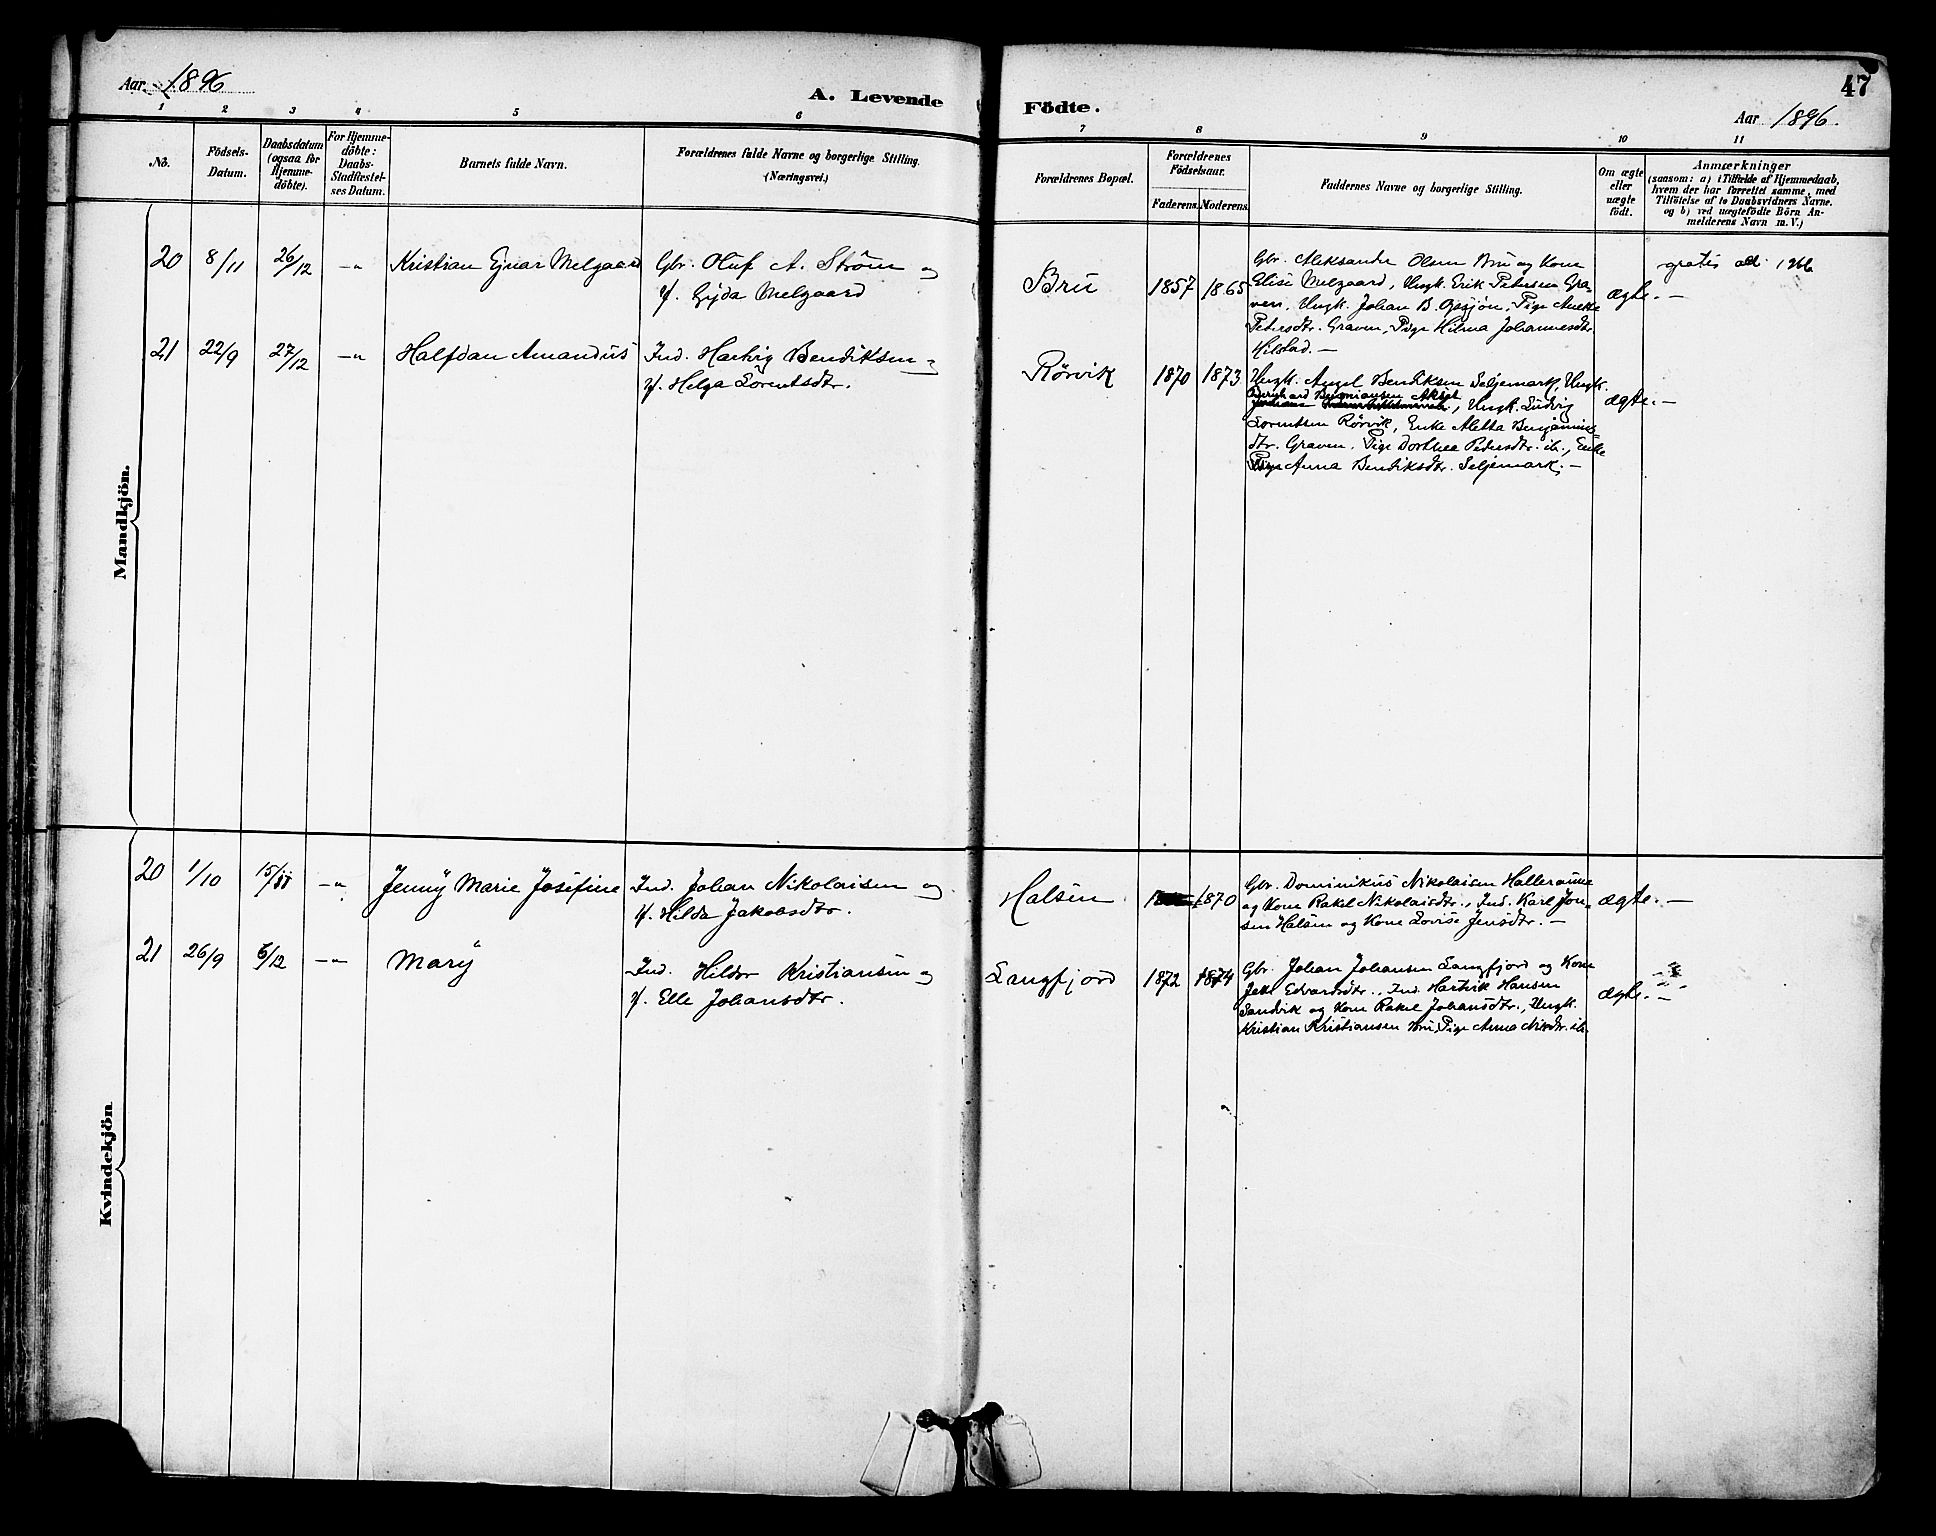 Aar 1896
A. Levende
Födte.
47
Aar 1896.
1 2 3 4 5 6 7 8 9 10 11
No.
Födsels-
Datum.
Daabsdatum
(ogsaa for
Hjemme-
döbte).
For Hjemme-
döbte:
Daabs-
Stadfæstel-
ses Datum.
Barnets fulde Navn.
Forældrenes fulde Navne og borgerlige Stilling.
(Næringsvei.)
Forældrenes Bopæl.
Forældrenes
Födselsaar.
Faderens. Moderens.
Faddernes Navne og borgerlige Stilling.
Om ægte
eller
uægte
födt.
Anmærkninger
(saasom: a) i Tilfælde af Hjemmedaab,
hvem der har forrettet samme, med
Tilföielse af to Daabsvidners Navne,
og b) ved uægtefödte Börn An-
melderens Navn m. V.)
Mandkjön.
20 8/11 26/12 -"- Kristian Ejnar Melgaard
Gbr. Oluf A. Strøm og
H. Gyda Melgaard
Bru 1857 1865
Gbr. Aleksander Olsen Bru og Kone
Elise Melgaard, Ungk. Erik Petersen Gra-
ven, Ungk. Johan B. Opsjøn, Pige Anette
Petersdtr. Graven, Pige Hilma Johannesdtr.
Hilstad. —
ægte. —
gratis att. 1966
21 22/9 27/12 -"- Halfdan Amandus
Ind. Hartvig Bendiksen og
H. Helga Lorentsdtr.
Rørvik 1870 1873
Ungk. Angel Bendiksen Seljemark, Ungk.
Ungk. Ludvig
Lorentsen Rørvik, Enke Aletta Benjamins-
dtr. Graven, Pige Dorthea Pedersdtr. ib., Enke
Pige Anna Bendiksdtr. Seljemark. —
ægte. —
Kvindekjön
20 1/10 15/11 -"- Jenny Marie Josefine
Ind. Johan Nikolaisen og
H. Hilda Jakobsdtr.
Halsen 1870
Gbr. Dominikus Nikolaisen Halleraune
og Kone Rakel Nikolaisdtr., Ind. Karl Jon-
sen Halsen og Kone Lovise Jensdtr. —
ægte. —
21 26/9 6/12 -"- Mary
Ind. Hildor Kristiansen og
H. Elle Johansdtr.
Langfjord 1872 1874
Gbr. Johan Johansen Langfjord og Kone
Edvardsdtr., Ind. Hartvik Hansen
Sandvik og Kone Rakel Johansdtr., Ungk.
Kristian Kristiansen Bru, Pige Anna Nilsdtr. ib.
ægte. —